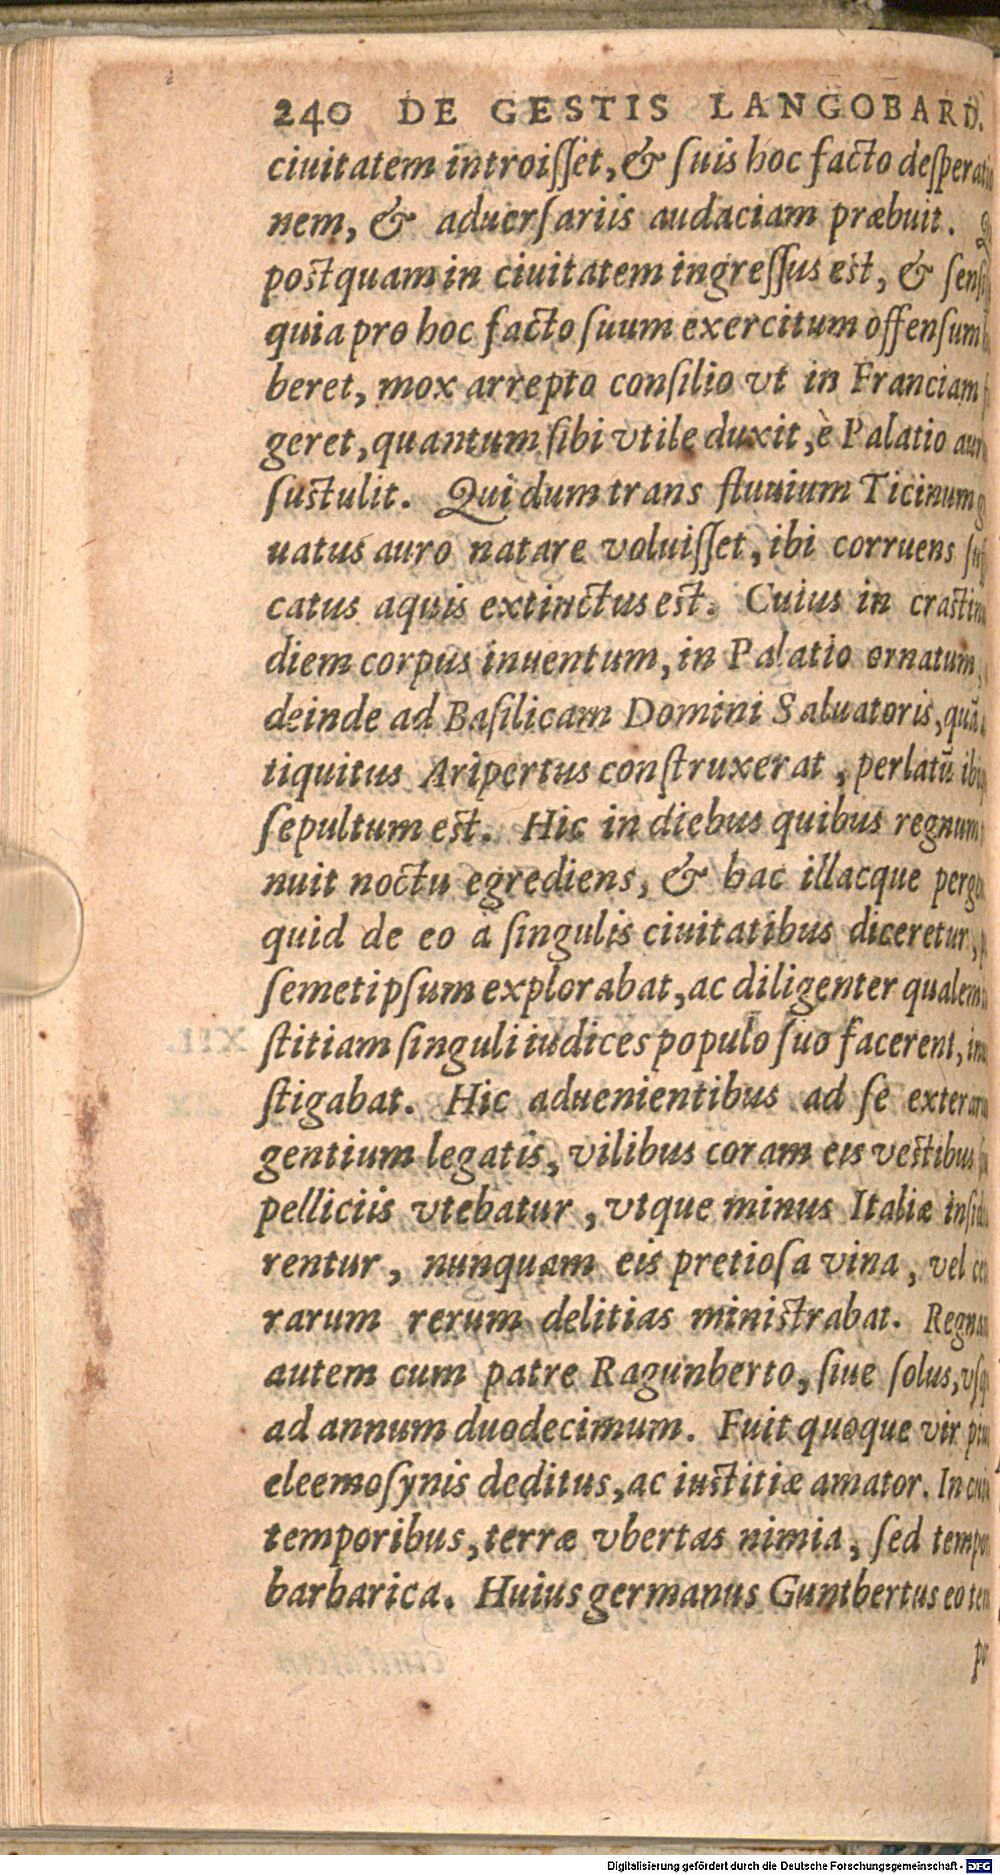 240 DE GESTIS LANGOBARD.
ciuitatem introiſſet, & ſuis hoc facto deſperatio
nem, & aduerſariis audaciam præbuit.
poſtquam in ciuitatem ingreſſus eſt, & ſenſi
quia pro hoc facto ſuum exercitum offenſum
beret, mox arrepto conſilio vt in Franciam
geret, quantum ſibi vtile duxit, è Palatio aur
ſuſtulit. Qui dum trans fluuium Ticinum
uatus auro natare voluiſſet, ibi corruens ſuf
catus aquis extinctus eſt. Cuius in craſtin
diem corpus inuentum, in Palatio ornatum,
deinde ad Baſilicam Domini Saluatoris, quā
tiquitus Aripertus conſtruxerat, perlatū ibi
ſepultum eſt. Hic in diebus quibus regnum
nuit noctu egrediens, & hac illacque perg
quid de eo à ſingulis ciuitatibus diceretur,
ſemetipſum explorabat, ac diligenter qualem
ſtitiam ſinguli iudices populo ſuo facerent, in
ſtigabat. Hic aduenientibus ad ſe exterar
gentium legatis, vilibus coram eis veſtibus
pelliciis vtebatur, vtque minus Italiæ inſi
rentur, nunquam eis pretioſa vina, vel
rarum rerum delitias miniſtrabat. Regn
autem cum patre Ragunberto, ſiue ſolus, vſq
ad annum duodecimum. Fuit quoque vir
eleemoſynis deditus, ac iuſtitiæ amator. In cui
temporibus, terræ vbertas nimia, ſed tempo
barbarica. Huius germanus Guntbertus eo tem
Digitalisierung gefördert durch die Deutsche Forschungsgemeinschaft - DFG